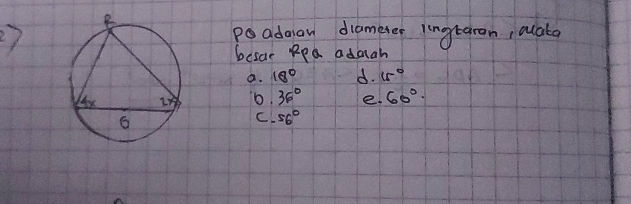 2)
R
4x
2x
6
PQ adalah diameter lingkaran, maka
besar RPQ adalah
a. 18°
b. 36°
c. 56°
d. 15°
e. 60°.